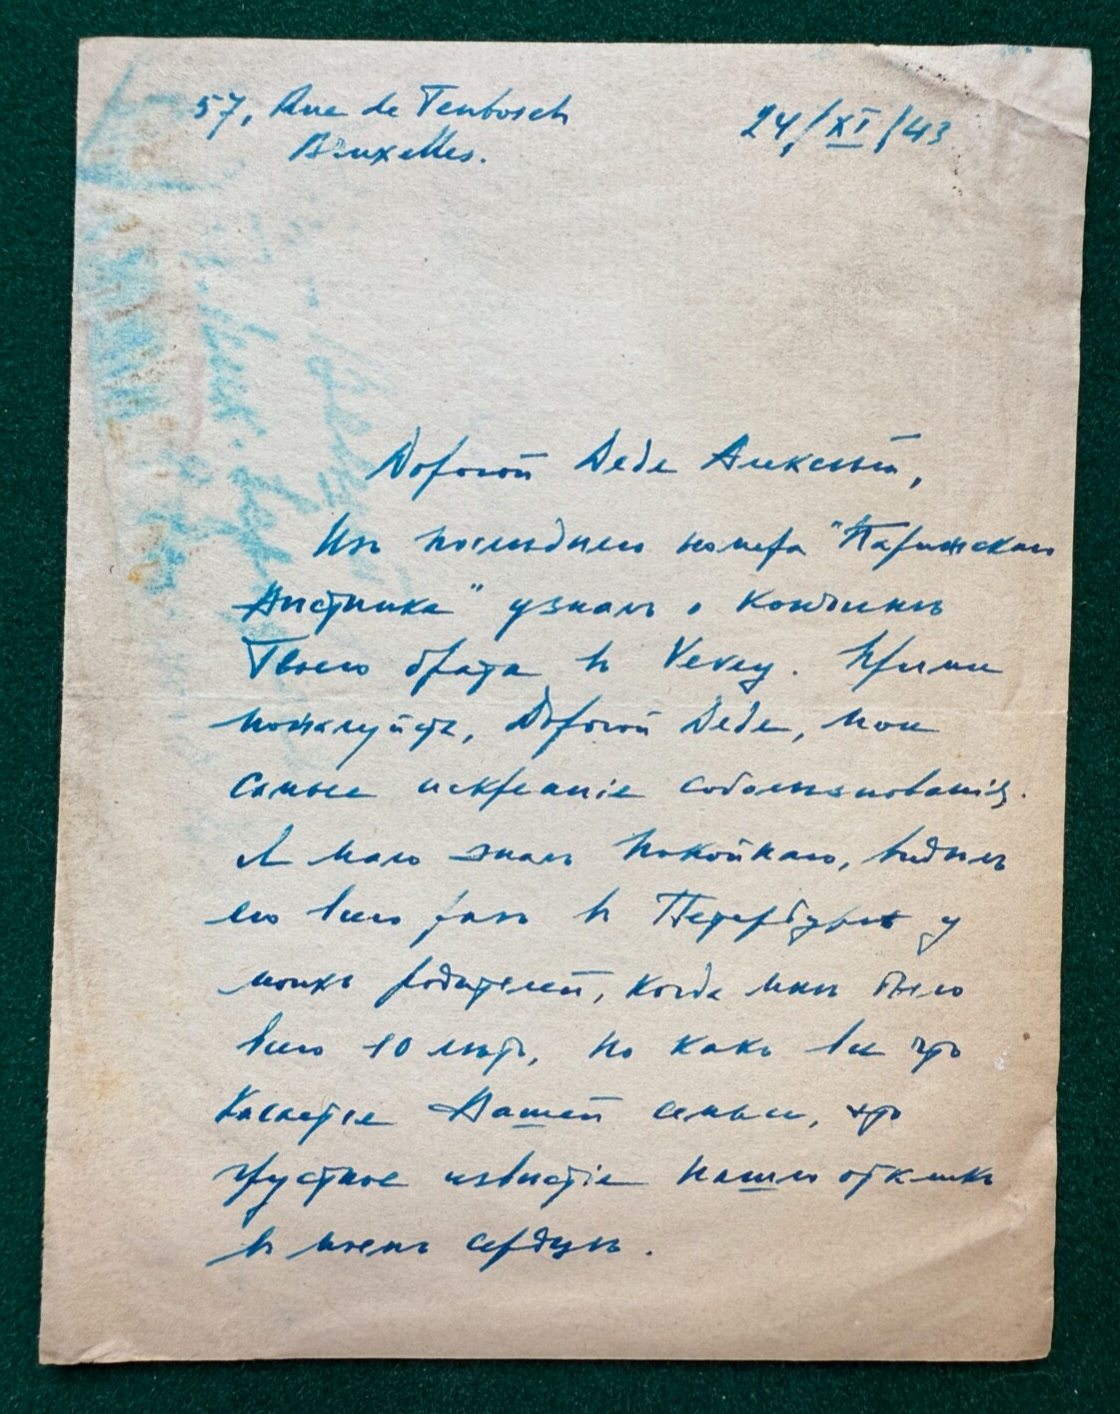 57, Rue de Tenbosch
Bruxelles.
24/XI/43
Дорогой Дедя Алексѣй,
Изъ послѣдняго номера "Парижскаго
Вѣстника" узналъ о кончинѣ
Твоего брата въ Vevey. Прими
пожалуйста, Дорогой Дедя, мои
самые искренніе соболѣзнованія.
Я мало зналъ покойнаго, видѣлъ
его всего разъ въ Петербургѣ у
моихъ родителей, когда мнѣ было
всего 10 лѣтъ, но какъ все что
касается Вашей семьи, это
грустное извѣстіе нашло откликъ
въ моемъ сердцѣ.